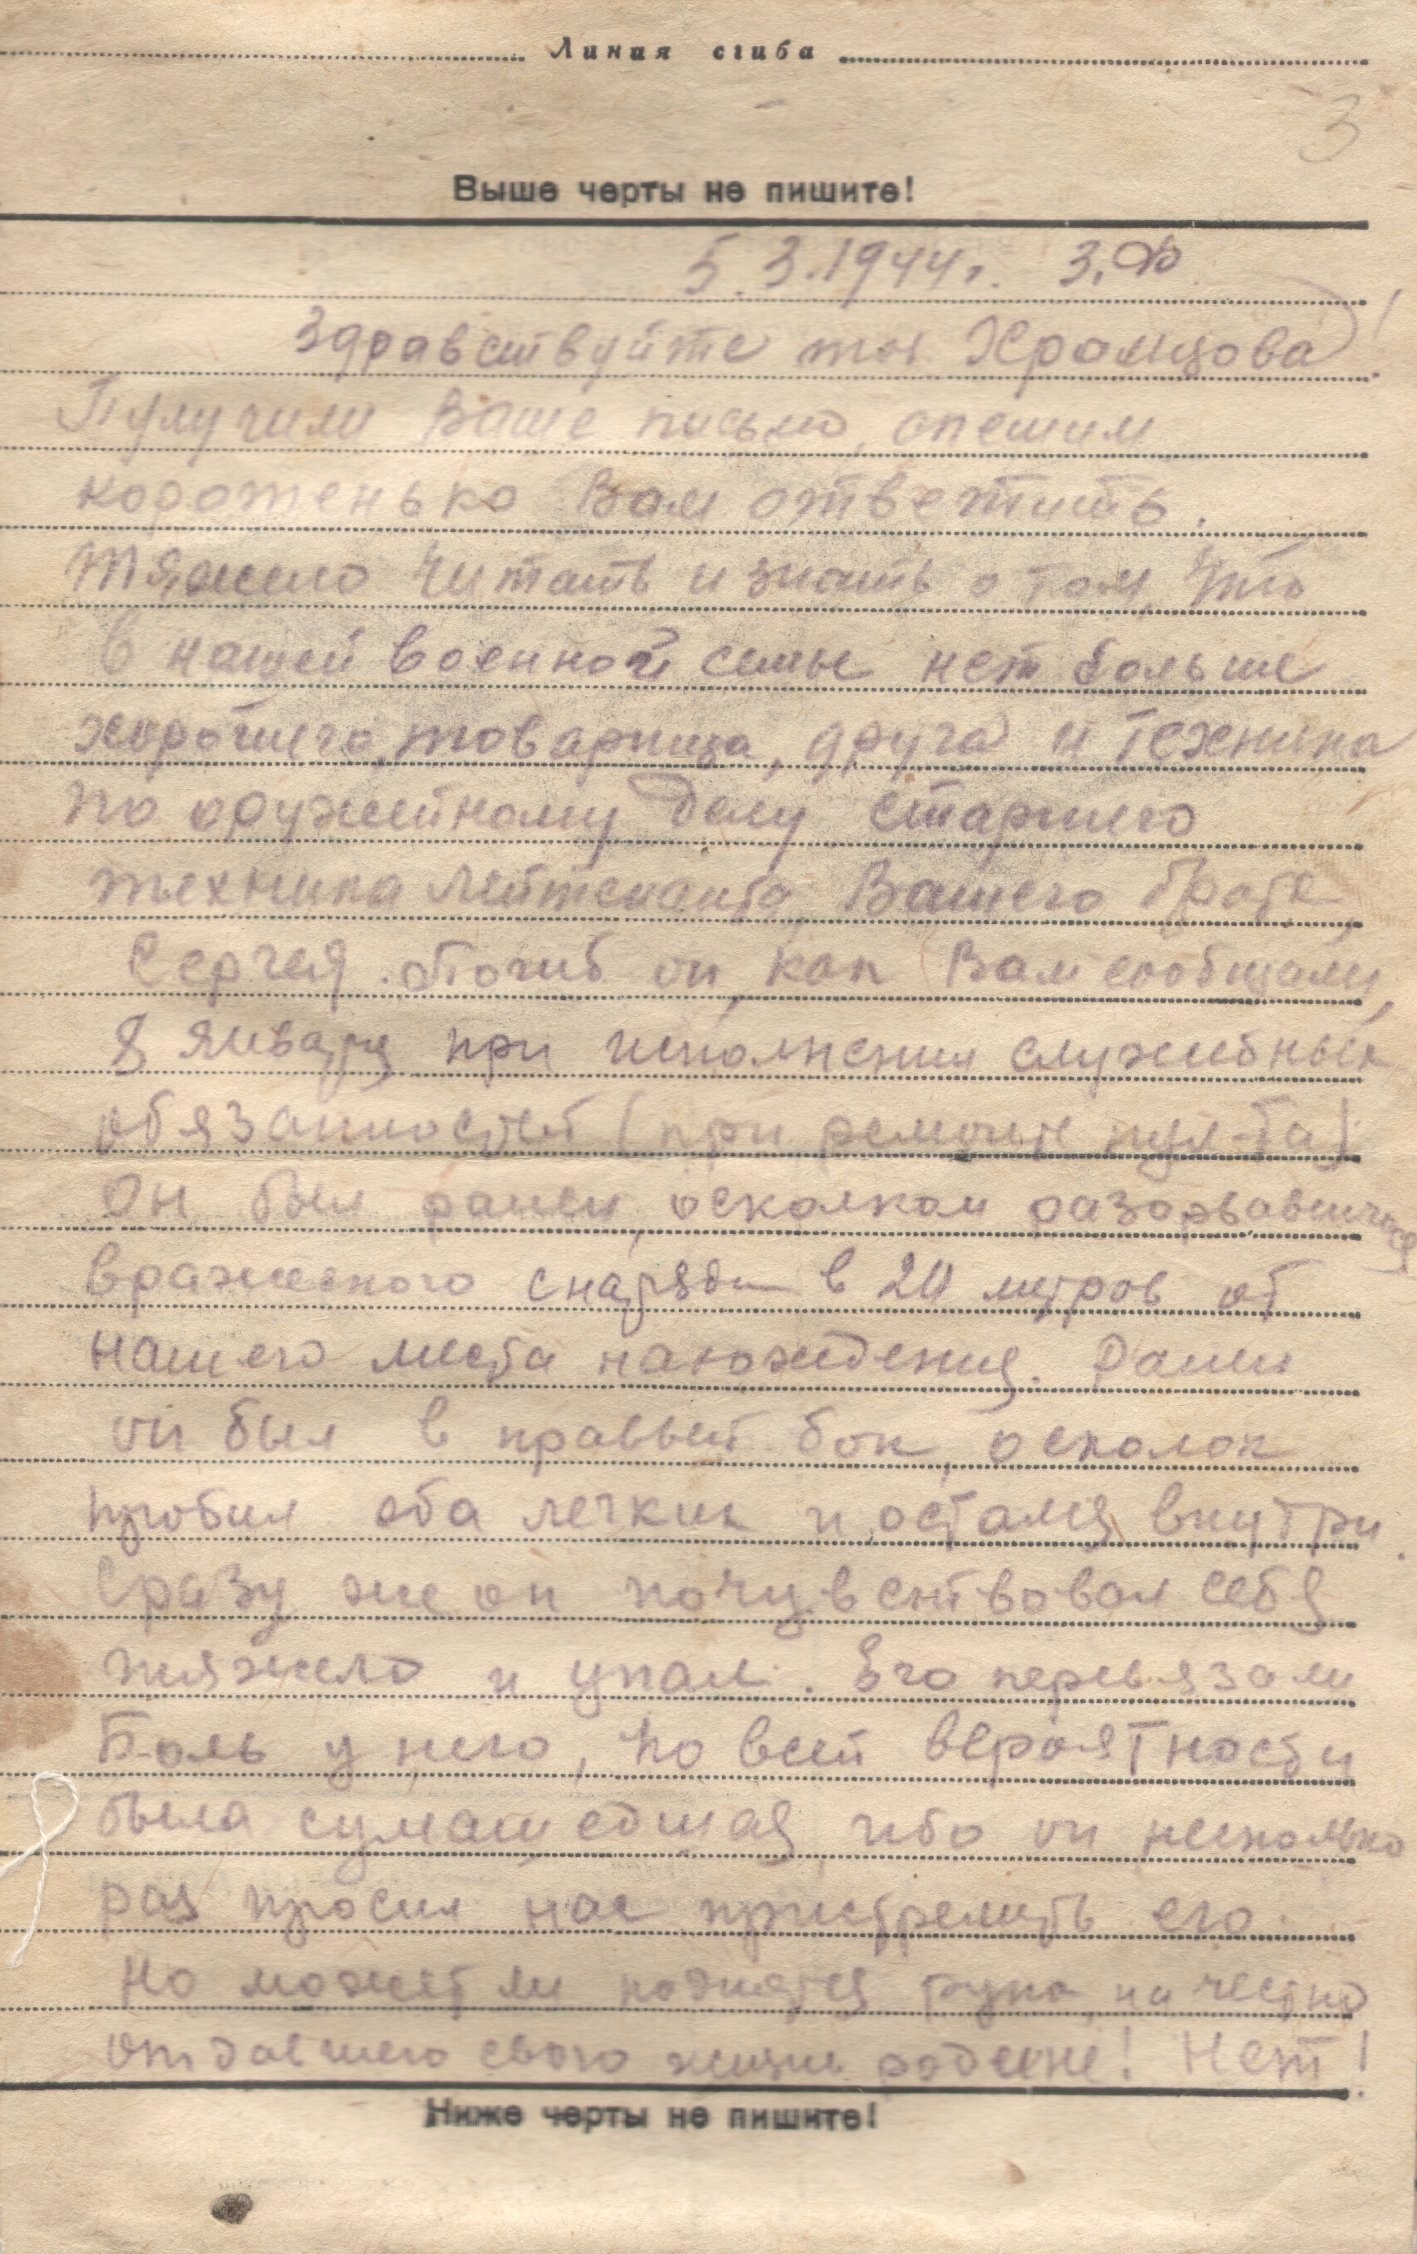 Линия сгиба
3
Выше черты не пишите!
5.3.1944г. З.Ф
Здравствуйте тов. Храмцова!
Пулучили Ваше письмо, спешим
коротенько Вам ответить.
Тяжело читать и знать о том, что
в нашей военной семье нет больше
хорошего товарища, друга и техника
по оружейному делу старшего
техника лейтенанта Вашего брата,
Сергея. Погиб он, как Вам сообщали,
8 января при исполнении служебных
обязанностей (при ремонте пул-та)
Он был ранен, осколком разорвавшегося
вражеского снаряда в 20 метров от
нашего места нахождения. Ранен
он был в правый бок, осколок
пробил оба легких и остался внутри.
Сразу же он почувствовал себя
тяжело и упал. Его перевязали
Боль у него, по всей вероятности
была сумашедшая, ибо он несколько
раз просил нас пристрелить его.
Но может ли поднятся рука, на честно
отдавшего свою жизнь родине! Нет!
Ниже черты не пишите!